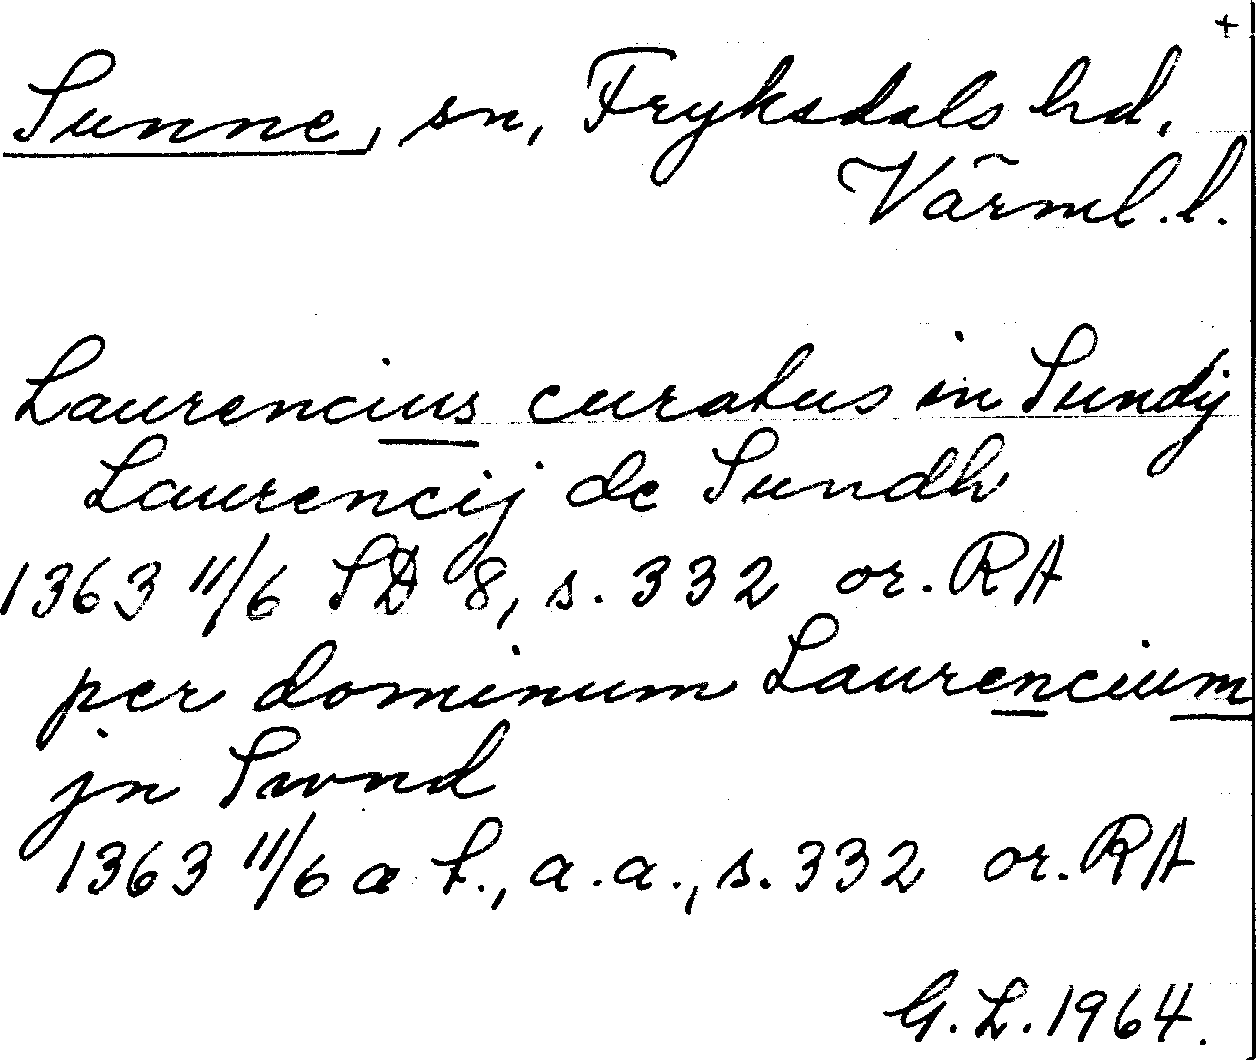 +
Sunne, sn, Fryksdals hd,
Värml. l.
Laurencius curatus in Sundij
Laurencij de Sundh
1363 11/6 SD 8, s. 332 or. RA
per dominum Laurencium
jn Swnd
1363 11/6 a L., a.a., s. 332 or. RA
G. L. 1964.